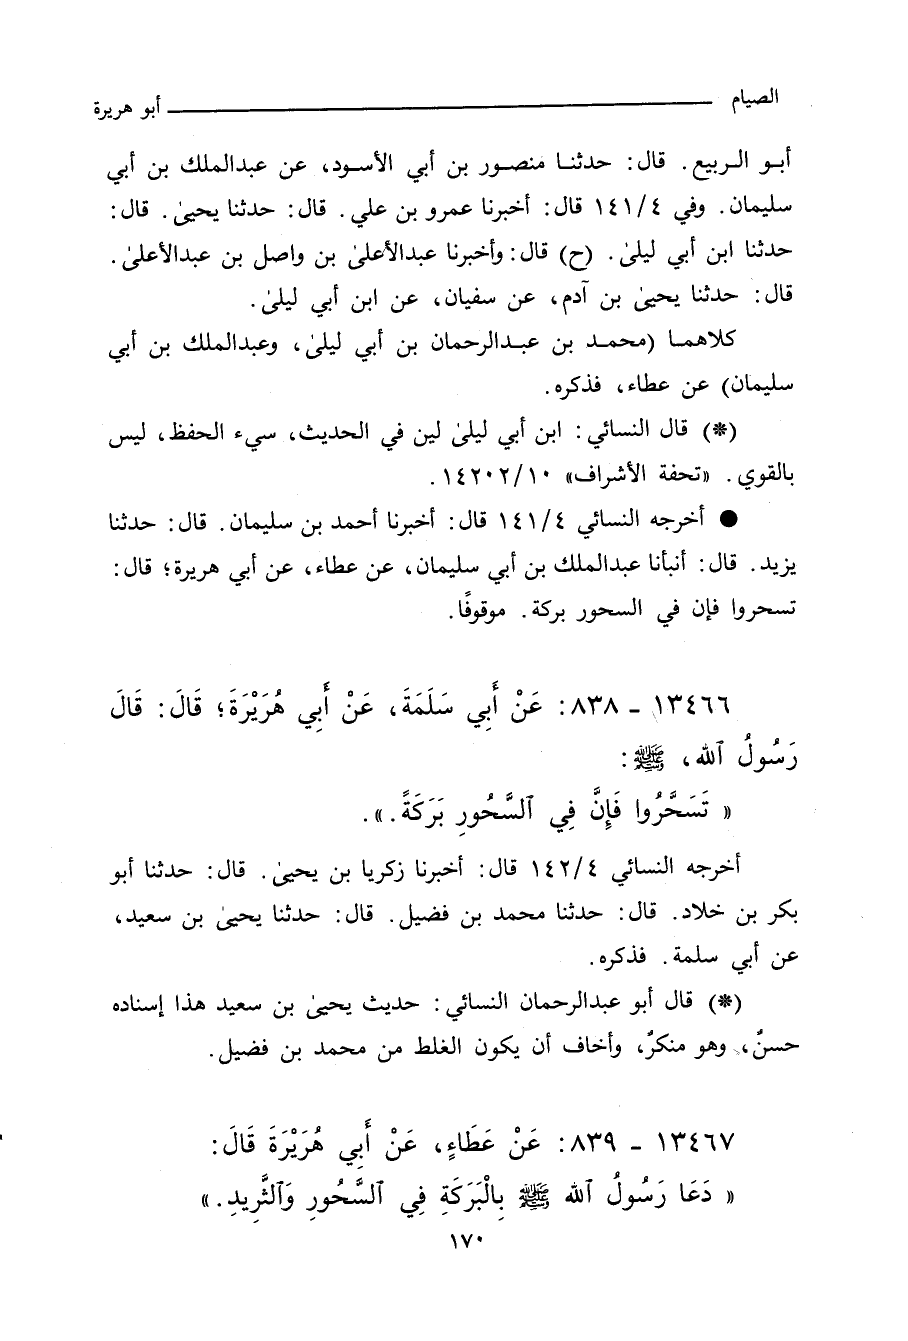 الصيام ــــــــــ أبو هريرة
أبو الربيع. قال: حدثنا منصور بن أبي الأسود، عن عبدالملك بن أبي
سليمان. وفي ٤/١٤١ قال: أخبرنا عمرو بن علي. قال: حدثنا يحيىٰ. قال:
حدثنا ابن أبي ليلىٰ. (ح) قال: وأخبرنا عبدالأعلىٰ بن واصل بن عبدالأعلىٰ.
قال: حدثنا يحيىٰ بن آدم، عن سفيان، عن ابن أبي ليلىٰ.
كلاهما (محمد بن عبدالرحمان بن أبي ليلىٰ، وعبدالملك بن أبي
سليمان) عن عطاء، فذكره.
(*) قال النسائي: ابن أبي ليلىٰ لين في الحديث، سيء الحفظ، ليس
بالقوي. «تحفة الأشراف» ١٠/١٤٢٠٢.
● أخرجه النسائي ٤/١٤١ قال: أخبرنا أحمد بن سليمان. قال: حدثنا
يزيد. قال: أنبأنا عبدالملك بن أبي سليمان، عن عطاء، عن أبي هريرة؛ قال:
تسحروا فإن في السحور بركة. موقوفًا.
١٣٤٦٦ - ٨٣٨: عَنْ أَبِي سَلَمَةَ، عَنْ أَبِي هُرَيْرَةَ؛ قَالَ: قَالَ
رَسُولُ ٱلله، ﷺ:
« تَسَحَّرُوا فَإِنَّ فِي ٱلسَّحُورِ بَرَكَةً.».
أخرجه النسائي ٤/١٤٢ قال: أخبرنا زكريا بن يحيىٰ. قال: حدثنا أبو
بكر بن خلاد. قال: حدثنا محمد بن فضيل. قال: حدثنا يحيىٰ بن سعيد،
عن أبي سلمة. فذكره.
(*) قال أبو عبدالرحمان النسائي: حديث يحيىٰ بن سعيد هذا إسناده
حسنٌ، وهو منكرٌ، وأخاف أن يكون الغلط من محمد بن فضيل.
١٣٤٦٧ - ٨٣٩: عَنْ عَطَاءٍ، عَنْ أَبِي هُرَيْرَةَ قَالَ:
« دَعَا رَسُولُ ٱلله ﷺ بِالْبَرَكَةِ فِي ٱلسَّحُورِ وَٱلثَّرِيدِ.»
١٧٠